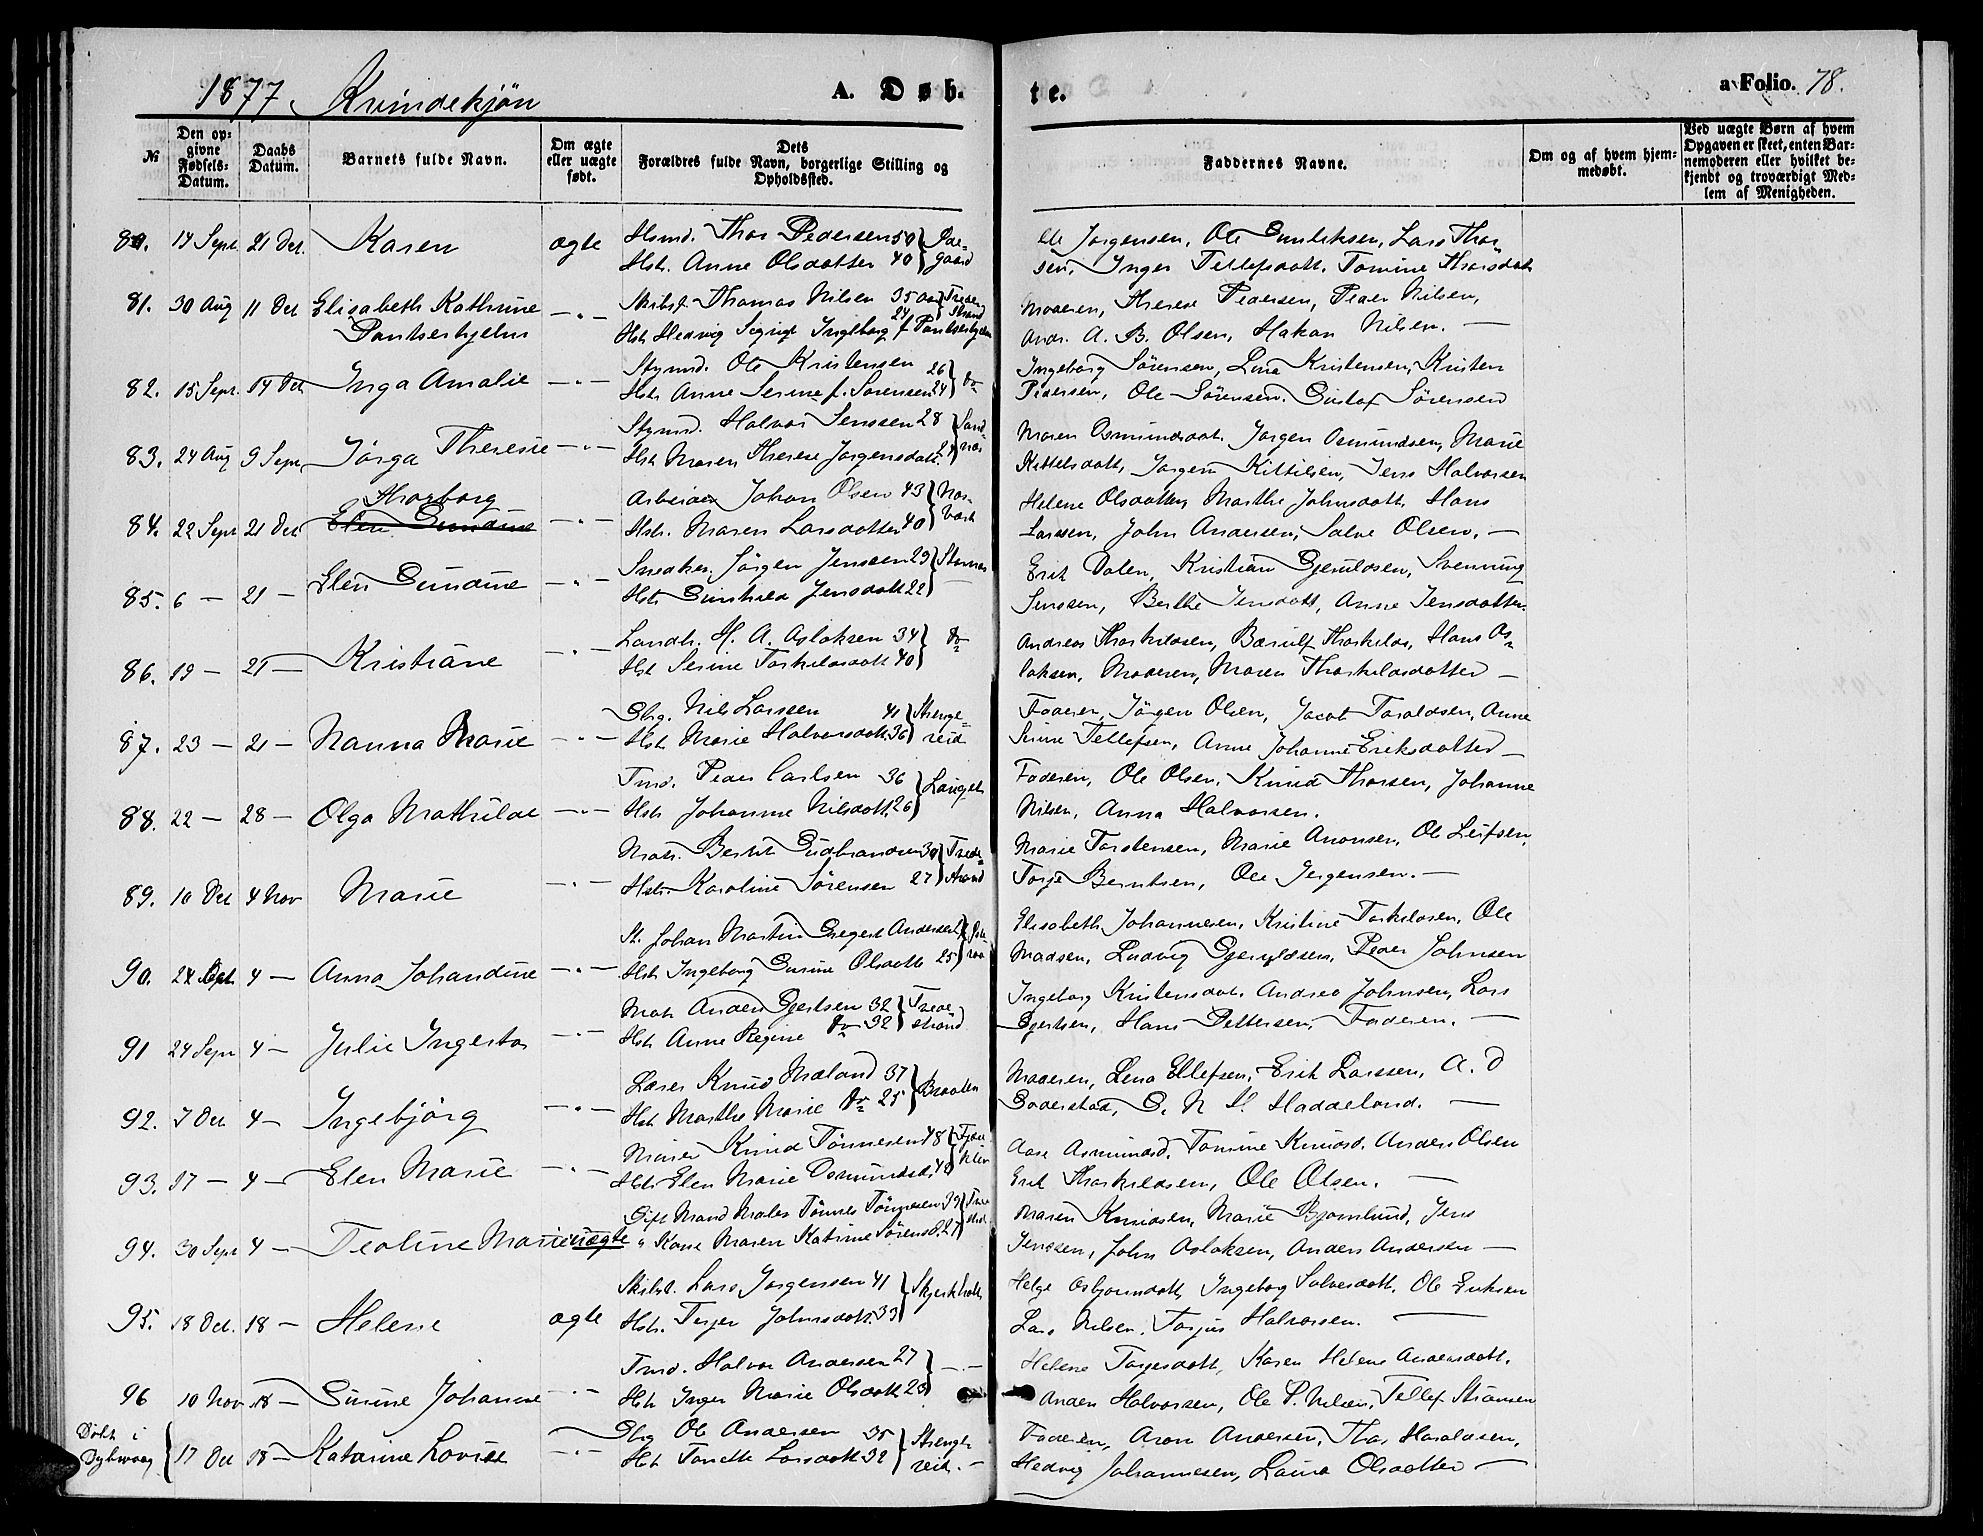 1877. Kvindekjön
A. Døb-
te.
a Folio. 78.
№
Den op-
givne
Fødsels-
Datum.
Daabs
Datum.
Barnets fulde Navn.
Om ægte
eller uægte
født.
Dets
Forældres fulde Navn, borgerlige Stilling og
Opholdssted.
Faddernes Navne.
Om og af hvem hjem-
medøbt.
Ved uægte Børn af hvem
Opgaven er skeet, enten Bar-
nemoderen eller hvilket be-
kjendt og troværdigt Med-
lem af Menigheden.
80. 14 Sept. 21 Oct. Karen ægte Hsmd. Thor Pedersen 50
Hst. Anne Olsdatter 40
Ole Jørgensen, Ole Lars Thor-
sen, Inger Tellefsdatt. Tomine Thorsdatt
81. 30 Aug 11 Oct Elisabeth Kathrine
Pantserhjelm
—"— Skibsf. Thomas Nilsen 35 Tvede-
strand
Hst. Hedvig Sigrid Ingeborg f. Pantserhjelm 24
Moderen, Therese Pedersen, Peder Nilsen,
Andr. A. B. Olsen, Hakon Nilsen. —
82. 15 Sept. 14 Oct Inga Amalie —"— Styrmd. Ole Kristensen 26
Hst. Anne Serine f. Sørensen 24 do
Ingeborg Sörensen, Lina Kristensen, Kristen
Pedersen, Ole Sörensen. Gustaf Sörensen
83. 24 Aug 9 Sept. Jörga Theresie —"— Styrmd. Halvor Jenssen 28
Hst. Maren Therese Jørgensdatt. 24
Maren Osmundsdatt. Jørgen Osmundsen, Marie
Kittelsdatt, Jørgen Kittilsen, Jens Halvorsen
84. 22 Sept 21 Oct Thorborg
Elen Gundine
—"— Arbeider Johan Olsen 43
Hst. Maren Larsdatter 40
Helene Olsdatter, Marthe Johnsdatt, Hans
Larssen, John Andersen, Salve Olsen. —
85. 6 — 21 — Elen Gundine —"— Snedker Jörgen Jenssen 29
Hst. Gunhild Jensdatt 22
Erik Dalen, Kristian Gjeruldsen, Svenning
Jenssen, Berthe Jensdatt, Anne Jensdatter.
86. 19 — 21 — Kristiane —"— Landh. H. A. Aslaksen 34 do
Hst Serine Torkildsdatt 40
Andreas Thorkildsen, Thorkilds. Hans As-
laksen, Moderen, Maren Thorkildsdatter —
87. 23 — 21 — Nanna Marie —"— Gbr. Nils Larssen 41 Strenge-
reid
Hst Marie Halvorsdatt 36
Faderen, Jörgen Olsen, Jacob Taraldsen, Anne
Serine Tellefsen, Anne Johanne Eriksdatter —
88. 22 — 28 — Olga Mathilde —"— Tmd. Peder Carlsen 36
Hst Johanne Nilsdatt. 26
Faderen, Ole Olsen, Knud Thorsen, Johanne
Nilsen, Anna Halvorsen.
89. 10 Oct 4 Nov Marie —"— Matr. Bernt Gudbrandsen 30 Tvede-
strand
Hst. Karoline Sörensen 27
Marie Torstensen, Marie Aronsen, Ole Leifsen,
Torje Berntsen, Ole Jergensen. —
90. 4 — Anna Johandine —"— St. Johan Martin Andersen
Hst Ingeborg Olsdatt 25
Elisabeth Johannesen, Kristine Torkildsen, Ole
Madsen, Ludvig Gjeruldsen, Peder Johnsen
91 24 Sept 4 — Julie Ingerta —"— Matr Anders Gjertsen 32 Tvede-
strand
Hst Anne Regine do 32
Ingeborg Kristensdatt. Andrea Johnsen, Lars
Gjertsen, Hans Pettersen, Faderen. —
92. 7 Oct 4 — Ingebjörg —"— Lærer Knud Mæland 37 Braaten
Hst Marthe Marie do 25
Moderen, Lena Ellefsen, Erik Larssen, A. D
G. N. Haddeland. —
93. 17 — 4 — Elen Marie —"— Knud Tönnesen 48
Hst Elen Marie Osmundsd. 42
Aase Asmundsd. Tomine Knudsd. Anders Olsen
Erik Thorkildsen, Ole Olsen. —
94. 30 Sept 4 — Teoline Marie uægte Gift Mand Maler Tönnes Tönnesen 39
" Kone Maren Katrine Sörensd. 27
Maren Knudsen, Marie Bjornlund, Jens
Jenssen, John Aslaksen, Anders Andersen —
95. 18 Oct. 18 — Helene ægte Skibst. Lars Jorgenssen 41
Hst. Terjer Johnsdatt. 33
Helge Osbjornsdatt, Ingeborg Salvesdatt, Ole Eriksen
Lars Nilsen. Torjus Halvorsen. —
96 10 Nov 18 — Johanne —"— Tmd. Halvor Andersen 27 —"—
Hst Inger Marie Olsdatt 23
Helene Torgesdatt, Karen Helene Andersdatt.
Anders Halvorsen, Ole P. Nilsen, Tellef
Döbt i
Dybvaag
17 Oct 18 — Katrine Lovise —"— Gbr Ole Andersen 35 Strenge-
reid. —
Hst Tomette Larsdatt 32
Faderen, Aron Andersen, Thor Haraldsen,
Hedvig Johannesen, Laura Olsdatter —